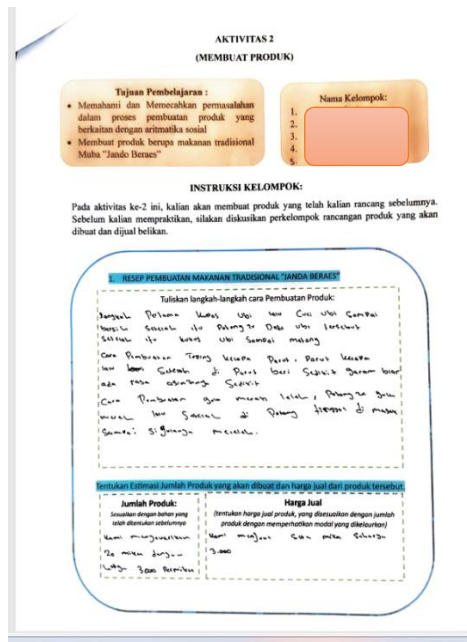 AKTIVITAS 2
(MEMBUAT PRODUK)
Tujuan Pembelajaran :
• Memahami dan Memecahkan permasalahan
dalam proses pembuatan produk yang
berkaitan dengan aritmatika sosial
• Membuat produk berupa makanan tradisional
Muba "Jando Beraes"
Nama Kelompok:
1.
2.
3.
4.
5.
INSTRUKSI KELOMPOK:
Pada aktivitas ke-2 ini, kalian akan membuat produk yang telah kalian rancang sebelumnya.
Sebelum kalian mempraktikan, silakan diskusikan perkelompok rancangan produk yang akan
dibuat dan dijual belikan.
1. RESEP PEMBUATAN MAKANAN TRADISIONAL "JANDA BERAES"
Tuliskan langkah-langkah cara Pembuatan Produk:
Pertama kupas ubi law Cuci ubi Sampai
bersih Setelah itu Potong ubi tersebut
Setelah itu kukus ubi Sampai matang
Cara Pembuatan kelapa Parut, Parut kelapa
law Setelah di Parut beri Sedikit garam biar
ada rasa Sedikit
Cara Pembuatan gula merah , Potong gula
merah law Setelah di Potong di masak
Sampai gulanya meleleh.
Tentukan Estimasi Jumlah Produk yang akan dibuat dan harga jual dari produk tersebut.
Jumlah Produk:
Sesuaikan dengan bahan yang
telah ditentukan sebelumnya
kami
20 mika dengan
3000 Permika
Harga Jual
(tentukan harga jual produk, yang disesuaikan dengan jumlah
produk dengan memperhatikan modal yang dikelaurkan)
kami menjual Satu mika Seharga
3.000